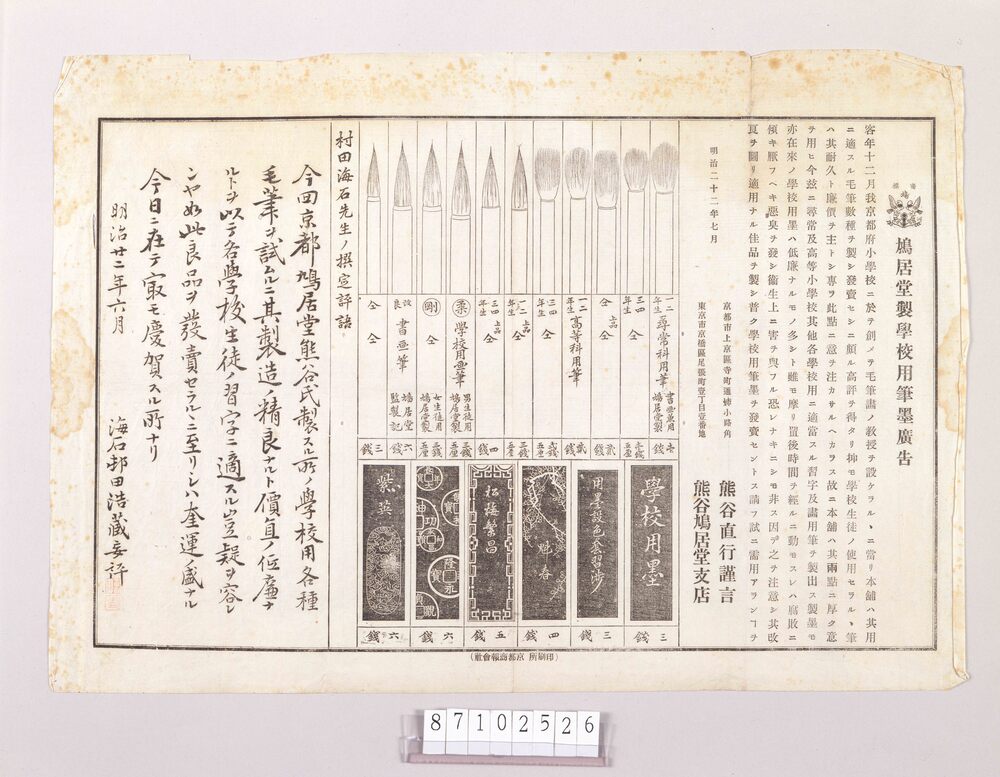 商標
鳩居堂製學校用筆墨廣告
客年十二月我京都府小學校ニ於テ創メテ毛筆畵ノ教授ヲ設ケラルヽニ當リ本舖ハ其用
ニ適スル毛筆數種ヲ製シ發賣セシニ頗ル高評ヲ得タリ抑モ學校生徒ノ使用セラルヽ筆
ハ其耐久ト廉價ヲ主トシ專ヲ此點ニ意ヲ注カサルヘカラス故ニ本舖ハ其兩點ニ厚ク意
ヲ用ヒ今玆ニ尋常及高等小學校其他各學校用ニ適當スル習字及畵用筆ヲ製出ス製墨モ
亦在來ノ學校用墨ハ低廉ナルモノ多シト雖モ摩リ置後時間ヲ經ルニ動モスレハ腐敗ニ
傾キ厭フヘキ惡臭ヲ發シ衞生上ニ害ヲ與フル恐レナキニシモ非ス因テ之ヲ注意シ其改
良ヲ圖リ適用ナル佳品ヲ製シ普ク學校用筆墨ヲ發賣セントス請フ試ニ需用アランヿヲ
明治二十二年七月
京都市上京區寺町通姉小路角
熊谷直行謹言
東京市京橋區尾張町壹丁目壹番地
熊谷鳩居堂支店
一二年生 尋常科用筆 書畫兼用 鳩居堂製
三四年生 仝 仝
一二年生 高等科用筆
三四年生 仝 仝
一二年生 上品 仝
三四年生 上品 仝
柔 學校用畫筆 男生徒用 鳩居堂製
剛 仝 女生徒用 鳩居堂製
改良 書畫筆 鳩居堂監製記
仝 仝
壱錢
壱錢五厘
貳錢
貳錢
貳錢五厘
三錢五厘
四錢
三錢五厘
五錢五厘
六錢
三錢
學校用墨
用墨設色叅習渉
魁春
松強繁昌
隆永
紫英
三錢
三錢
四錢
五錢
六錢
六錢
村田海石先生ノ撰定評語
今囬京都鳩居堂熊谷氏製スル所ノ學校用各種
毛筆ヲ試ムルニ其製造ノ精良ナルト價直ノ低廉ナ
ルトヲ以テ各學校生徒ノ習字ニ適スル豈疑ヲ容レ
ンヤ如此良品ヲ發賣セラルヽニ至リシハ奎運ノ盛ナル
今日ニ在テ㝡モ慶賀スル所ナリ
明治廿二年六月
海石邨田浩藏妄評
(印刷所 京都商報會社)
87102526